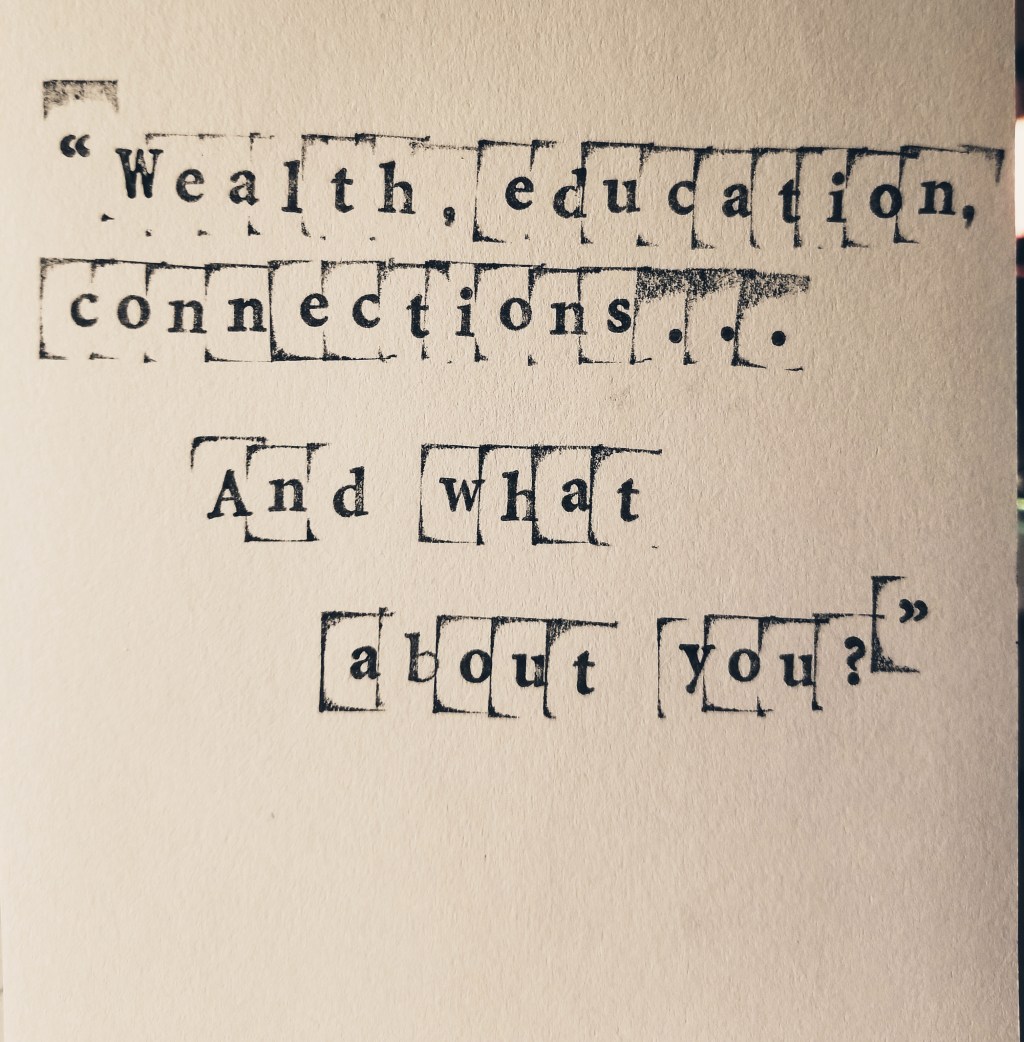 “Wealth, education,
connections...
And what
about you?”